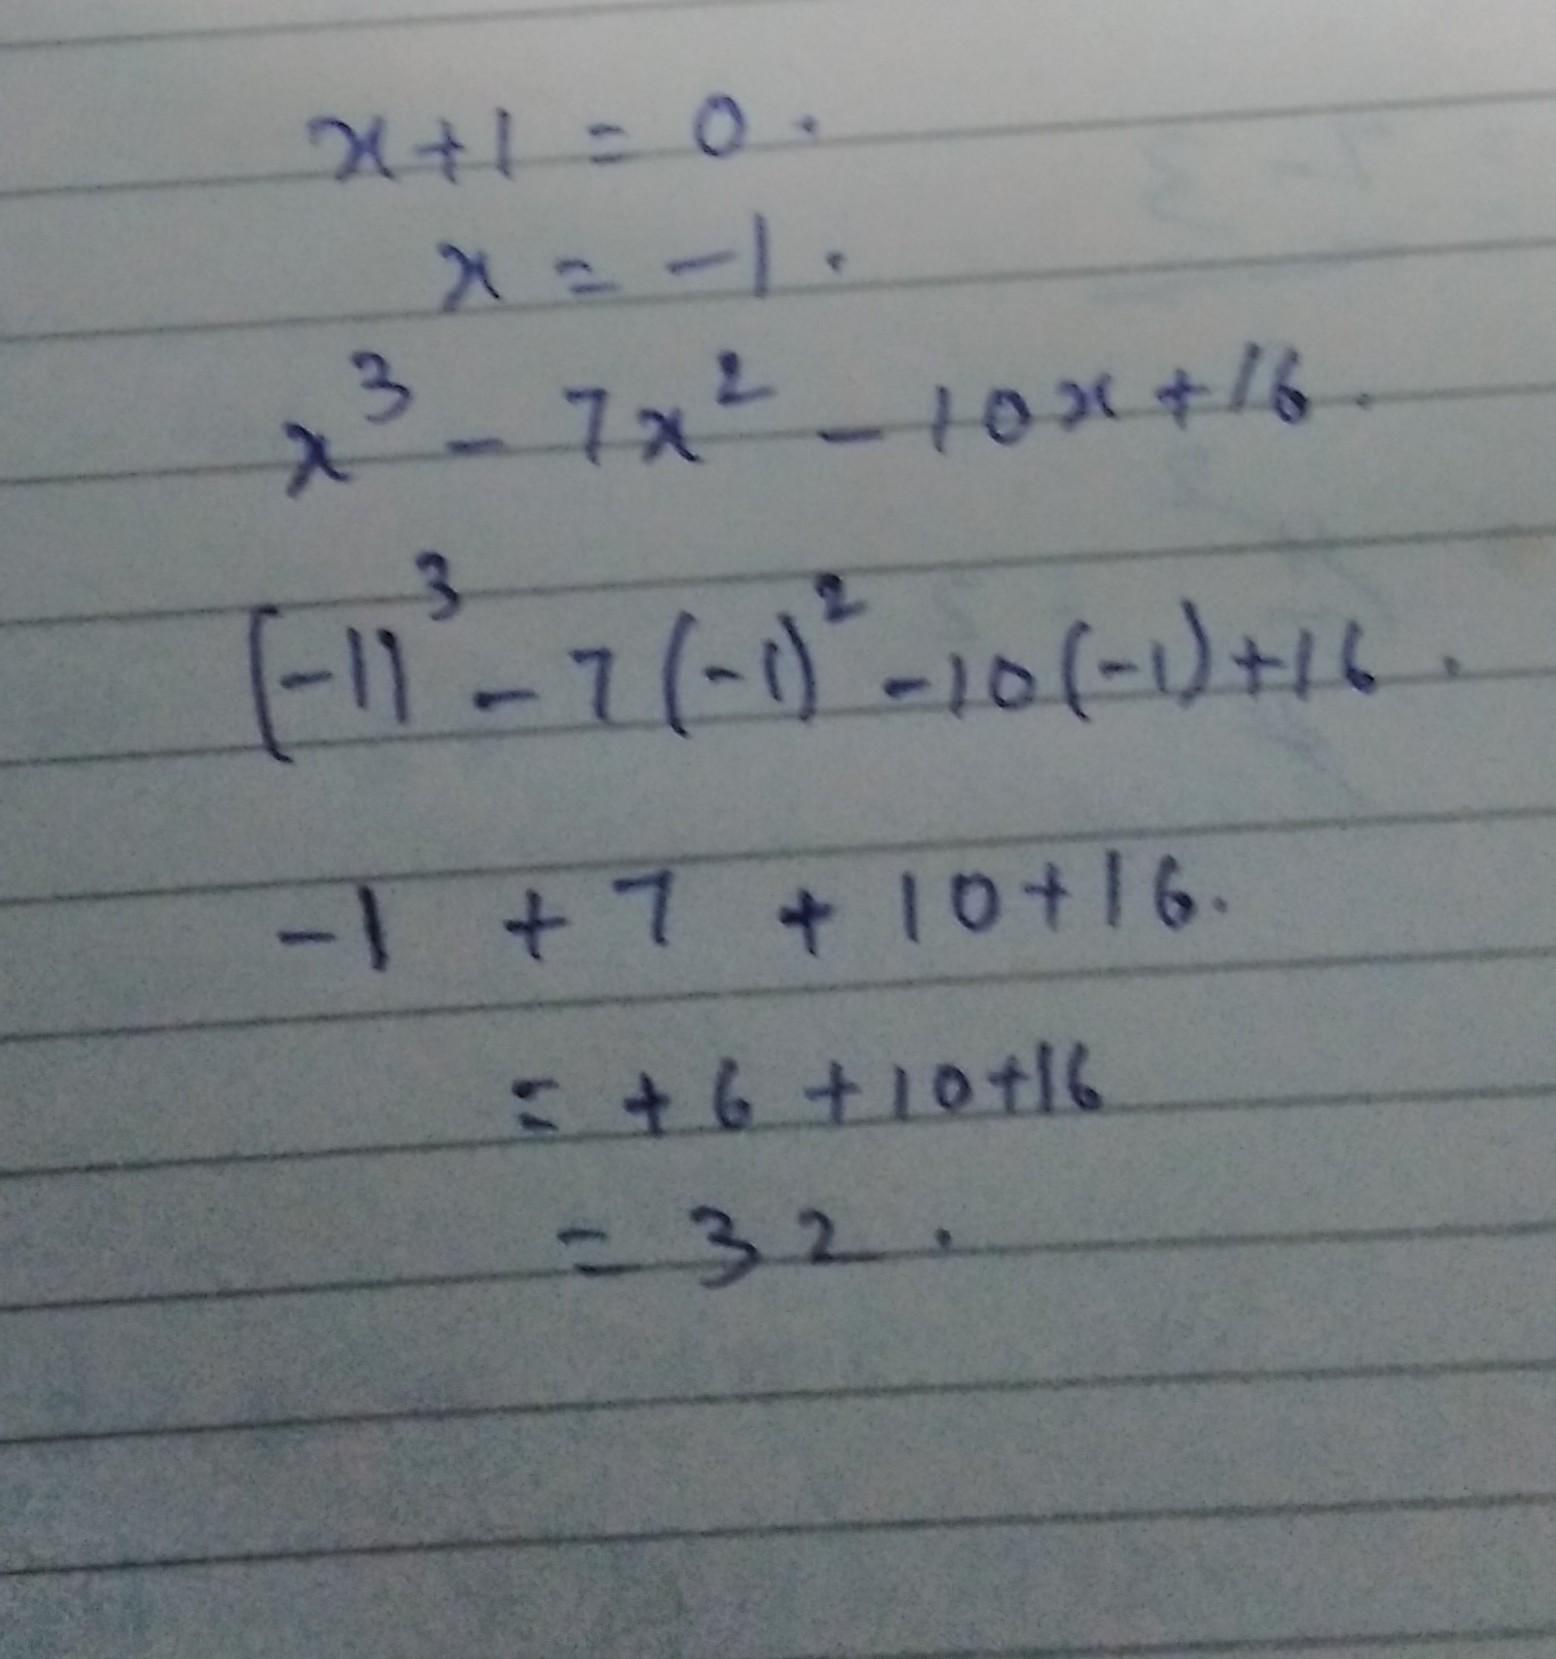 x+1 = 0.
x = -1.
x³ - 7x² - 10x + 16.
(-1)³ - 7(-1)² - 10(-1) + 16.
-1 + 7 + 10 + 16.
= + 6 + 10 + 16
= 32.